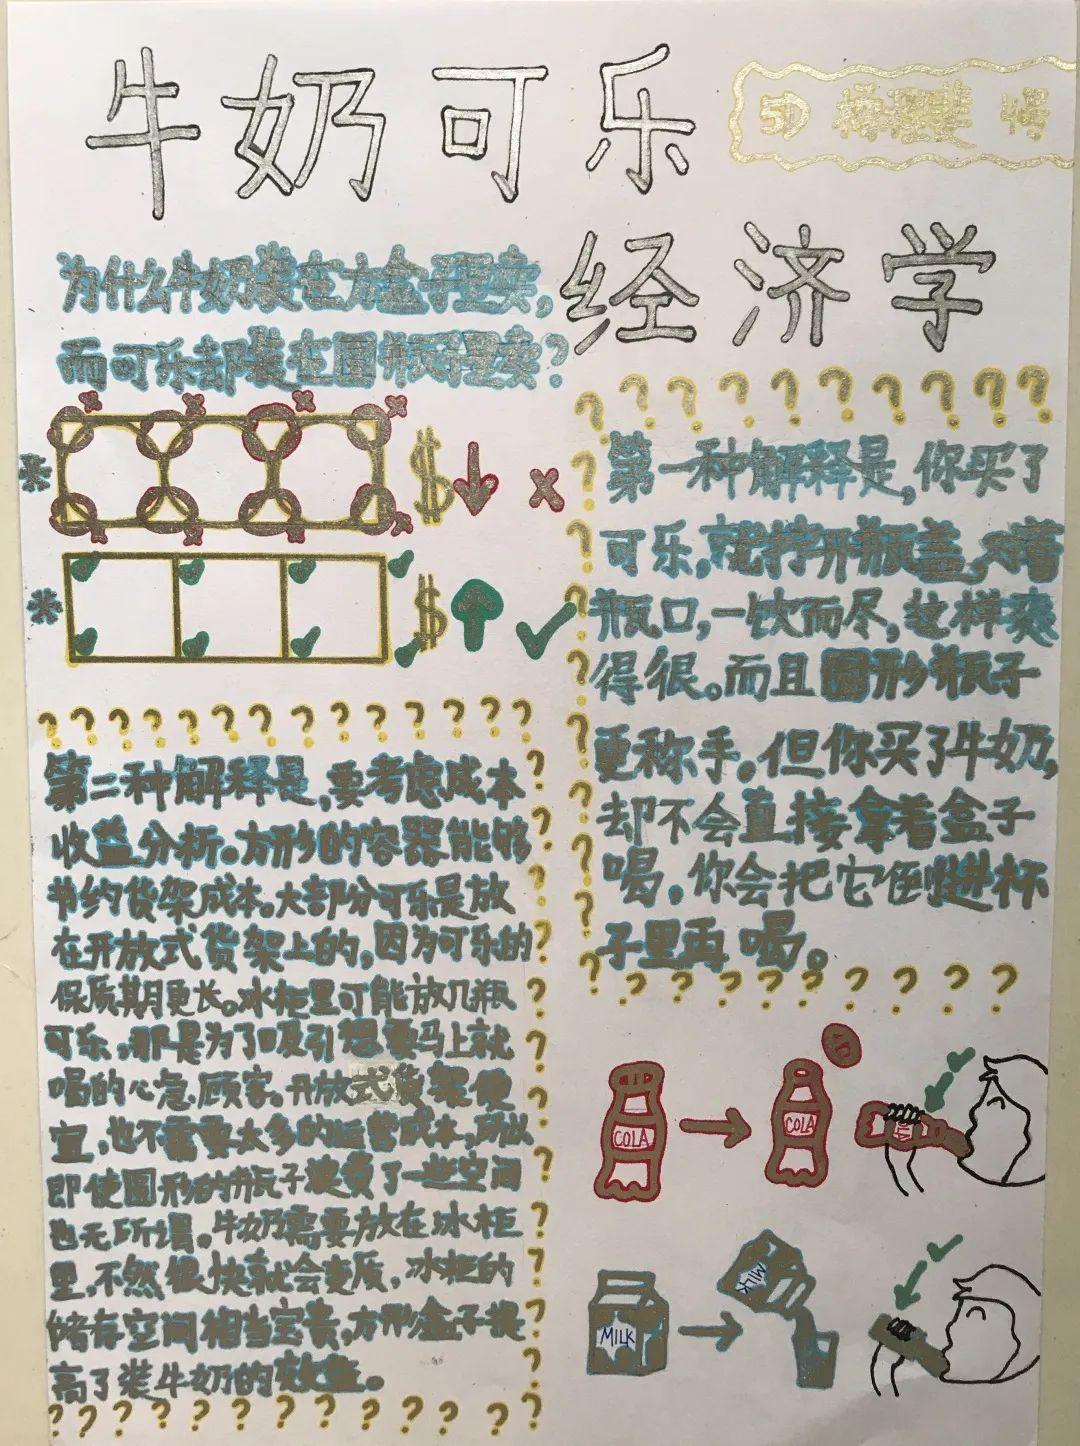 牛奶可乐
经济学
为什么牛奶装在方盒子里卖,
而可乐却装在圆瓶子里卖?
第一种解释是,你买了
可乐,就拧开瓶盖,对着
瓶口,一饮而尽,这样爽
得很。而且圆形瓶子
更称手。但你买了牛奶,
却不会直接拿着盒子
喝,你会把它倒进杯
子里再喝。
第二种解释是,要考虑成本
收益分析。方形的容器能够
节约货架成本。大部分可乐是放
在开放式货架上的,因为可乐的
保质期更长。冰柜里可能放几瓶
可乐,那是为了吸引想要马上就
喝的心急顾客。开放式货架便
宜,也不需要太多的运营成本,所以
即使圆形的瓶子浪费了一些空间
也无所谓。牛奶需要放在冰柜
里,不然很快就会变质,冰柜的
储存空间相当宝贵,方形盒子提
高了装牛奶的效益。
COLA
COLA
MILK
MILK